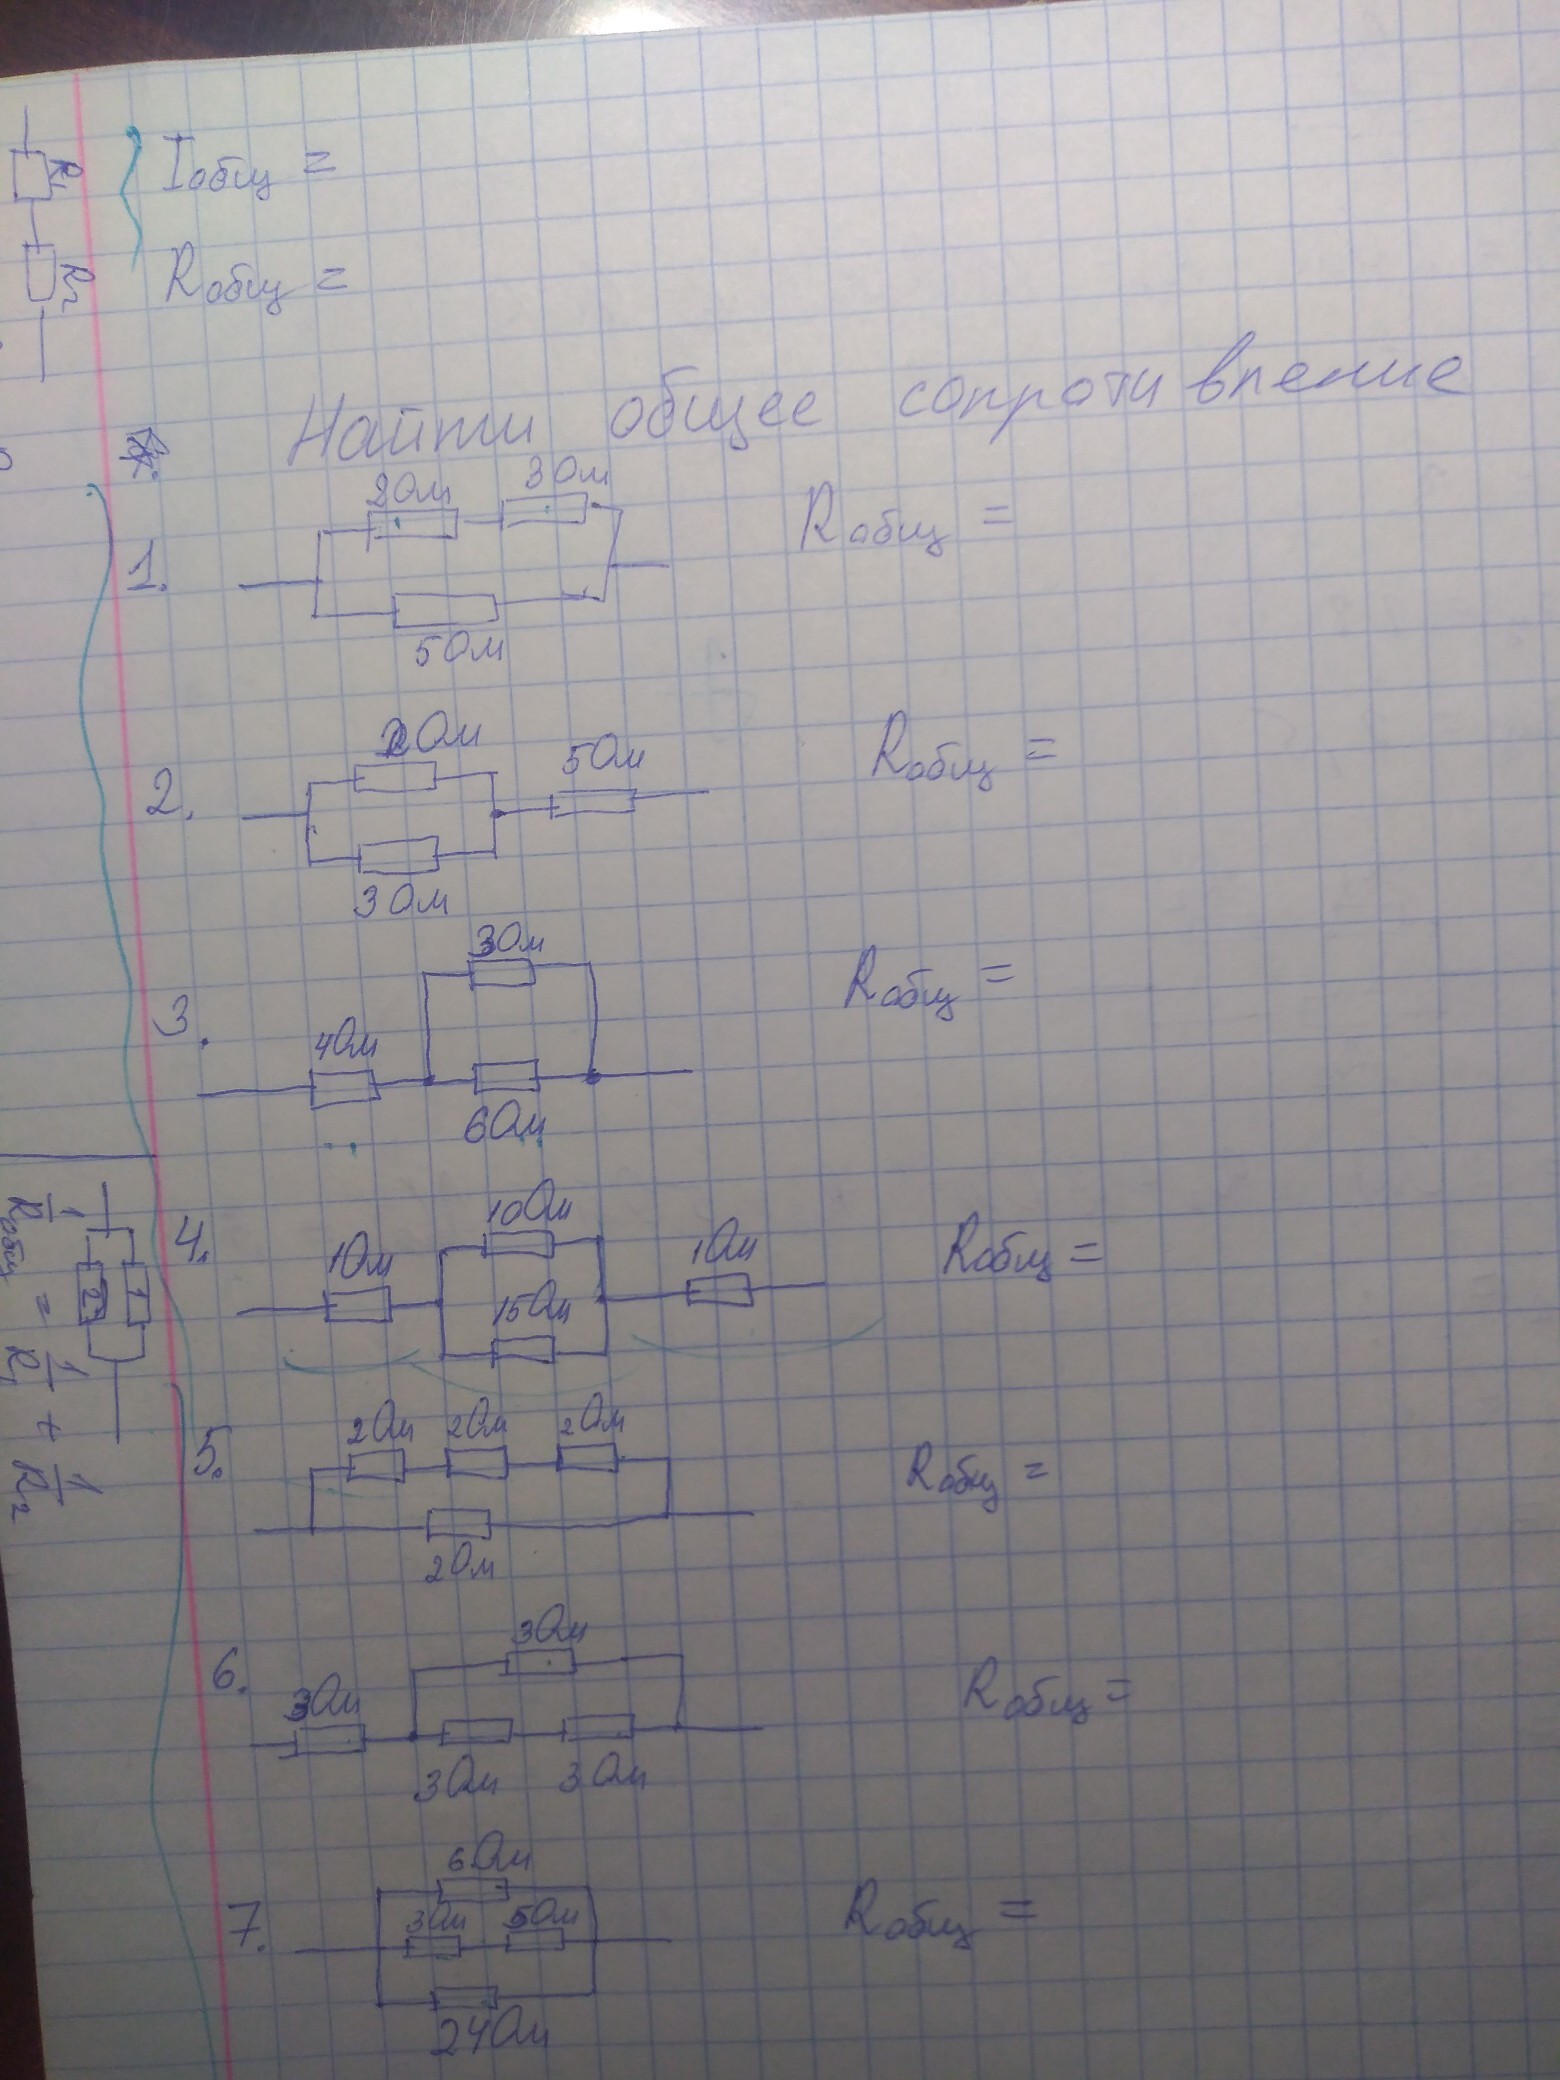 R₁
R₂
Iобщ =
Rобщ =
Найти общее сопротивление
1.
2 Ом 3 Ом
5 Ом
Rобщ =
2.
2 Ом 5 Ом
3 Ом
Rобщ =
3.
3 Ом
4 Ом
6 Ом
Rобщ =
4.
10 Ом
1 Ом 1 Ом
15 Ом
Rобщ =
1/Rобщ = 1/R₁ + 1/R₂
1
2
5.
2 Ом 2 Ом 2 Ом
2 Ом
Rобщ =
6.
3 Ом
3 Ом
3 Ом 3 Ом
Rобщ =
7.
6 Ом
3 Ом 5 Ом
24 Ом
Rобщ =